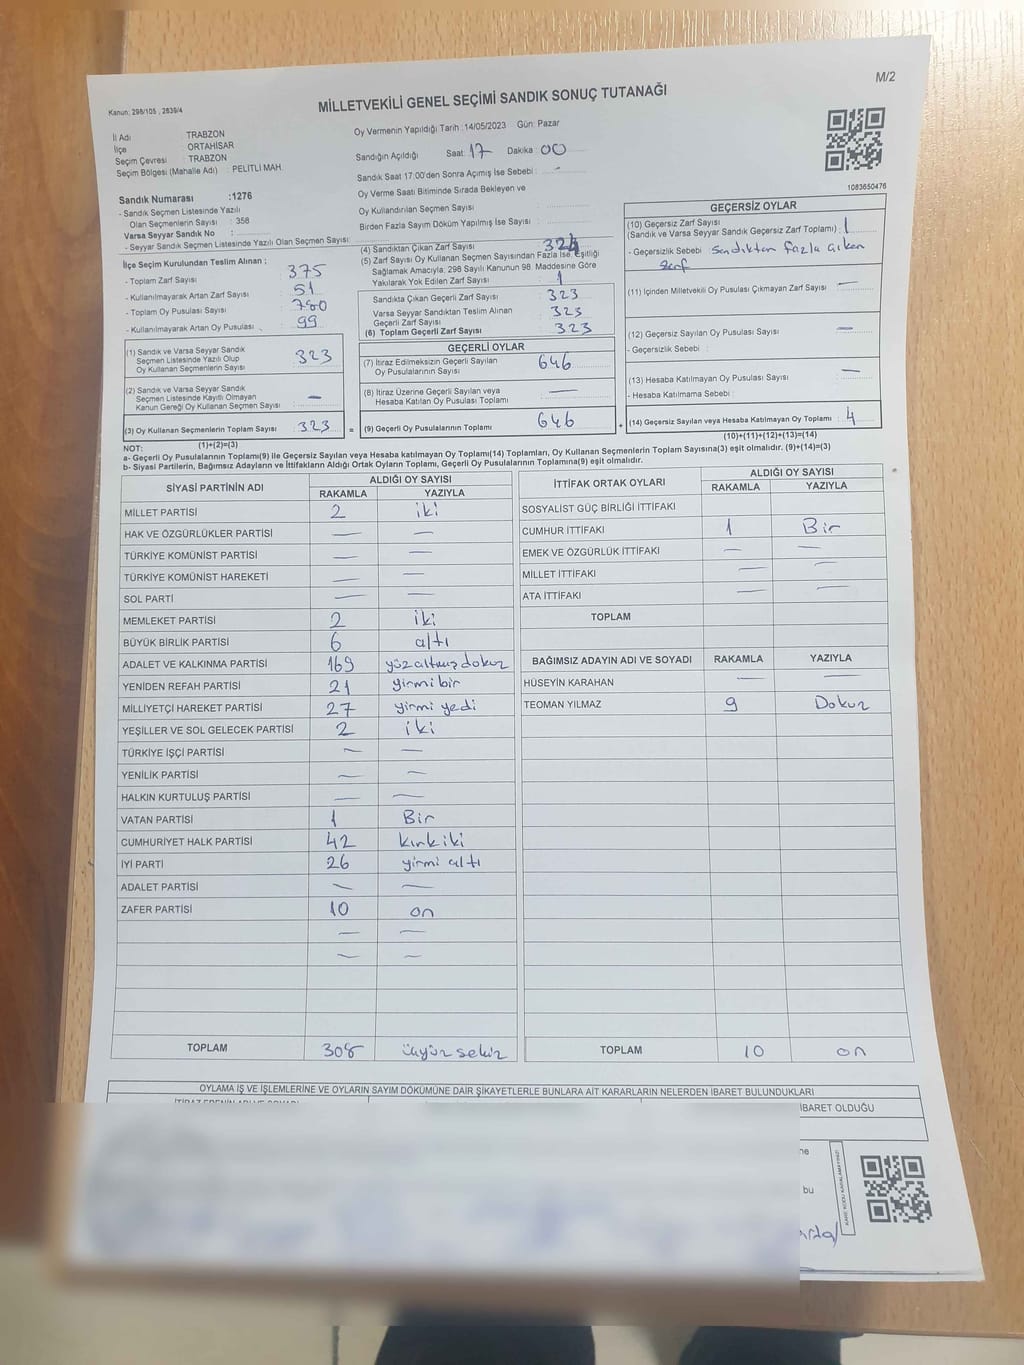 M/2
Kanun: 298/105 , 2839/4
MİLLETVEKİLİ GENEL SEÇİMİ SANDIK SONUÇ TUTANAĞI
İl Adı : TRABZON
İlçe : ORTAHİSAR
Seçim Çevresi : TRABZON
Seçim Bölgesi (Mahalle Adı) : PELİTLİ MAH.
Oy Vermenin Yapıldığı Tarih :14/05/2023 Gün: Pazar
Sandığın Açıldığı Saat: 17 Dakika : 00
Sandık Saat 17:00'den Sonra Açımış İse Sebebi : -
Oy Verme Saati Bitiminde Sırada Bekleyen ve
Oy Kullandırılan Seçmen Sayısı :
Birden Fazla Sayım Döküm Yapılmış İse Sayısı :
1083650476
Sandık Numarası :1276
- Sandık Seçmen Listesinde Yazılı
Olan Seçmenlerin Sayısı : 358
Varsa Seyyar Sandık No :
- Seyyar Sandık Seçmen Listesinde Yazılı Olan Seçmen Sayısı:
İlçe Seçim Kurulundan Teslim Alınan ;
- Toplam Zarf Sayısı : 375
- Kullanılmayarak Artan Zarf Sayısı : 51
- Toplam Oy Pusulası Sayısı : 780
- Kullanılmayarak Artan Oy Pusulası : 99
(1) Sandık ve Varsa Seyyar Sandık
Seçmen Listesinde Yazılı Olup
Oy Kullanan Seçmenlerin Sayısı : 323
(2) Sandık ve Varsa Seyyar Sandık
Seçmen Listesinde Kayıtlı Olmayan
Kanun Gereği Oy Kullanan Seçmen Sayısı : -
(3) Oy Kullanan Seçmenlerin Toplam Sayısı : 323
(1)+(2)=(3)
(4) Sandıktan Çıkan Zarf Sayısı : 324
(5) Zarf Sayısı Oy Kullanan Seçmen Sayısından Fazla İse, Eşitliği
Sağlamak Amacıyla; 298 Sayılı Kanunun 98. Maddesine Göre
Yakılarak Yok Edilen Zarf Sayısı : 1
Sandıkta Çıkan Geçerli Zarf Sayısı : 323
Varsa Seyyar Sandıktan Teslim Alınan
Geçerli Zarf Sayısı : 323
(6) Toplam Geçerli Zarf Sayısı : 323
GEÇERLİ OYLAR
(7) İtiraz Edilmeksizin Geçerli Sayılan
Oy Pusulalarının Sayısı : 646
(8) İtiraz Üzerine Geçerli Sayılan veya
Hesaba Katılan Oy Pusulası Toplamı : —
= (9) Geçerli Oy Pusulalarının Toplamı : 646 +
GEÇERSİZ OYLAR
(10) Geçersiz Zarf Sayısı
(Sandık ve Varsa Seyyar Sandık Geçersiz Zarf Toplamı) : 1
- Geçersizlik Sebebi : Sandıktan fazla çıkan
zarf
(11) İçinden Milletvekili Oy Pusulası Çıkmayan Zarf Sayısı : —
(12) Geçersiz Sayılan Oy Pusulası Sayısı : —
- Geçersizlik Sebebi :
(13) Hesaba Katılmayan Oy Pusulası Sayısı : —
- Hesaba Katılmama Sebebi :
(14) Geçersiz Sayılan veya Hesaba Katılmayan Oy Toplamı : 4
(10)+(11)+(12)+(13)=(14)
NOT:
a- Geçerli Oy Pusulalarının Toplamı(9) ile Geçersiz Sayılan veya Hesaba katılmayan Oy Toplamı(14) Toplamları, Oy Kullanan Seçmenlerin Toplam Sayısına(3) eşit olmalıdır. (9)+(14)=(3)
b- Siyasi Partilerin, Bağımsız Adayların ve İttifakların Aldığı Ortak Oyların Toplamı, Geçerli Oy Pusulalarının Toplamına(9) eşit olmalıdır.
SİYASİ PARTİNİN ADI ALDIĞI OY SAYISI
RAKAMLA YAZIYLA
MİLLET PARTİSİ 2 iki
HAK VE ÖZGÜRLÜKLER PARTİSİ — —
TÜRKİYE KOMÜNİST PARTİSİ — —
TÜRKİYE KOMÜNİST HAREKETİ — —
SOL PARTİ — —
MEMLEKET PARTİSİ 2 iki
BÜYÜK BİRLİK PARTİSİ 6 altı
ADALET VE KALKINMA PARTİSİ 169 yüzaltmış dokuz
YENİDEN REFAH PARTİSİ 21 yirmi bir
MİLLİYETÇİ HAREKET PARTİSİ 27 yirmi yedi
YEŞİLLER VE SOL GELECEK PARTİSİ 2 iki
TÜRKİYE İŞÇİ PARTİSİ — —
YENİLİK PARTİSİ — —
HALKIN KURTULUŞ PARTİSİ — —
VATAN PARTİSİ 1 Bir
CUMHURİYET HALK PARTİSİ 42 kırk iki
İYİ PARTİ 26 yirmi altı
ADALET PARTİSİ — —
ZAFER PARTİSİ 10 on
— —
— —
TOPLAM 308 üçyüz sekiz
İTTİFAK ORTAK OYLARI ALDIĞI OY SAYISI
RAKAMLA YAZIYLA
SOSYALİST GÜÇ BİRLİĞİ İTTİFAKI
CUMHUR İTTİFAKI 1 Bir
EMEK VE ÖZGÜRLÜK İTTİFAKI — —
MİLLET İTTİFAKI — —
ATA İTTİFAKI — —
TOPLAM
BAĞIMSIZ ADAYIN ADI VE SOYADI RAKAMLA YAZIYLA
HÜSEYİN KARAHAN — —
TEOMAN YILMAZ 9 Dokuz
TOPLAM 10 on
OYLAMA İŞ VE İŞLEMLERİNE VE OYLARIN SAYIM DÖKÜMÜNE DAİR ŞİKAYETLERLE BUNLARA AİT KARARLARIN NELERDEN İBARET BULUNDUKLARI
İBARET OLDUĞU
bu